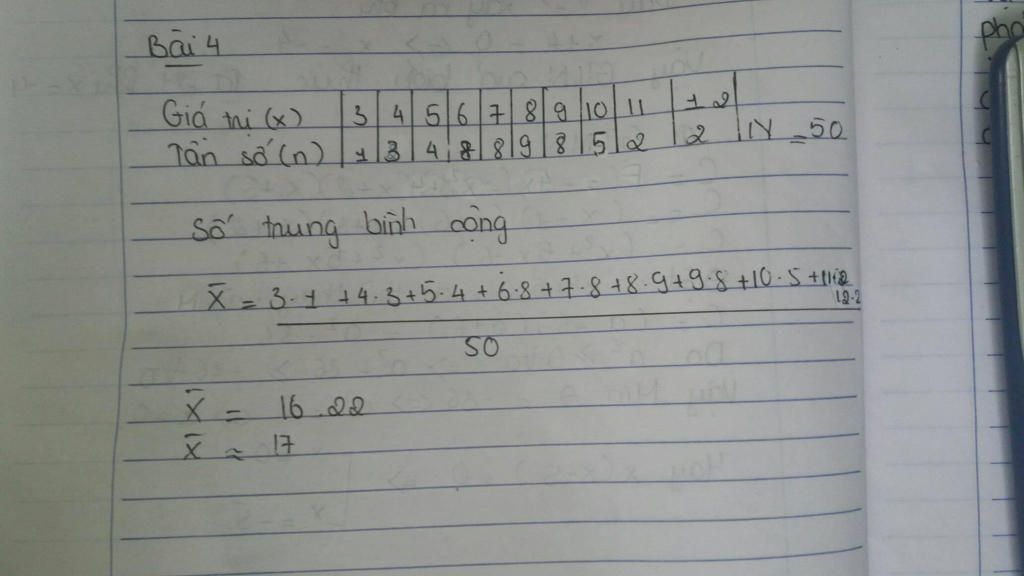 Bài 4
Giá trị (x) 3 4 5 6 7 8 9 10 11 12
Tần số (n) 1 3 4 8 8 9 8 5 2 2 N = 50
Số trung bình cộng
X̄ = 3.1 + 4.3 + 5.4 + 6.8 + 7.8 + 8.9 + 9.8 + 10.5 + 11.2
12.2
50
X̄ = 16.22
X̄ ≈ 17